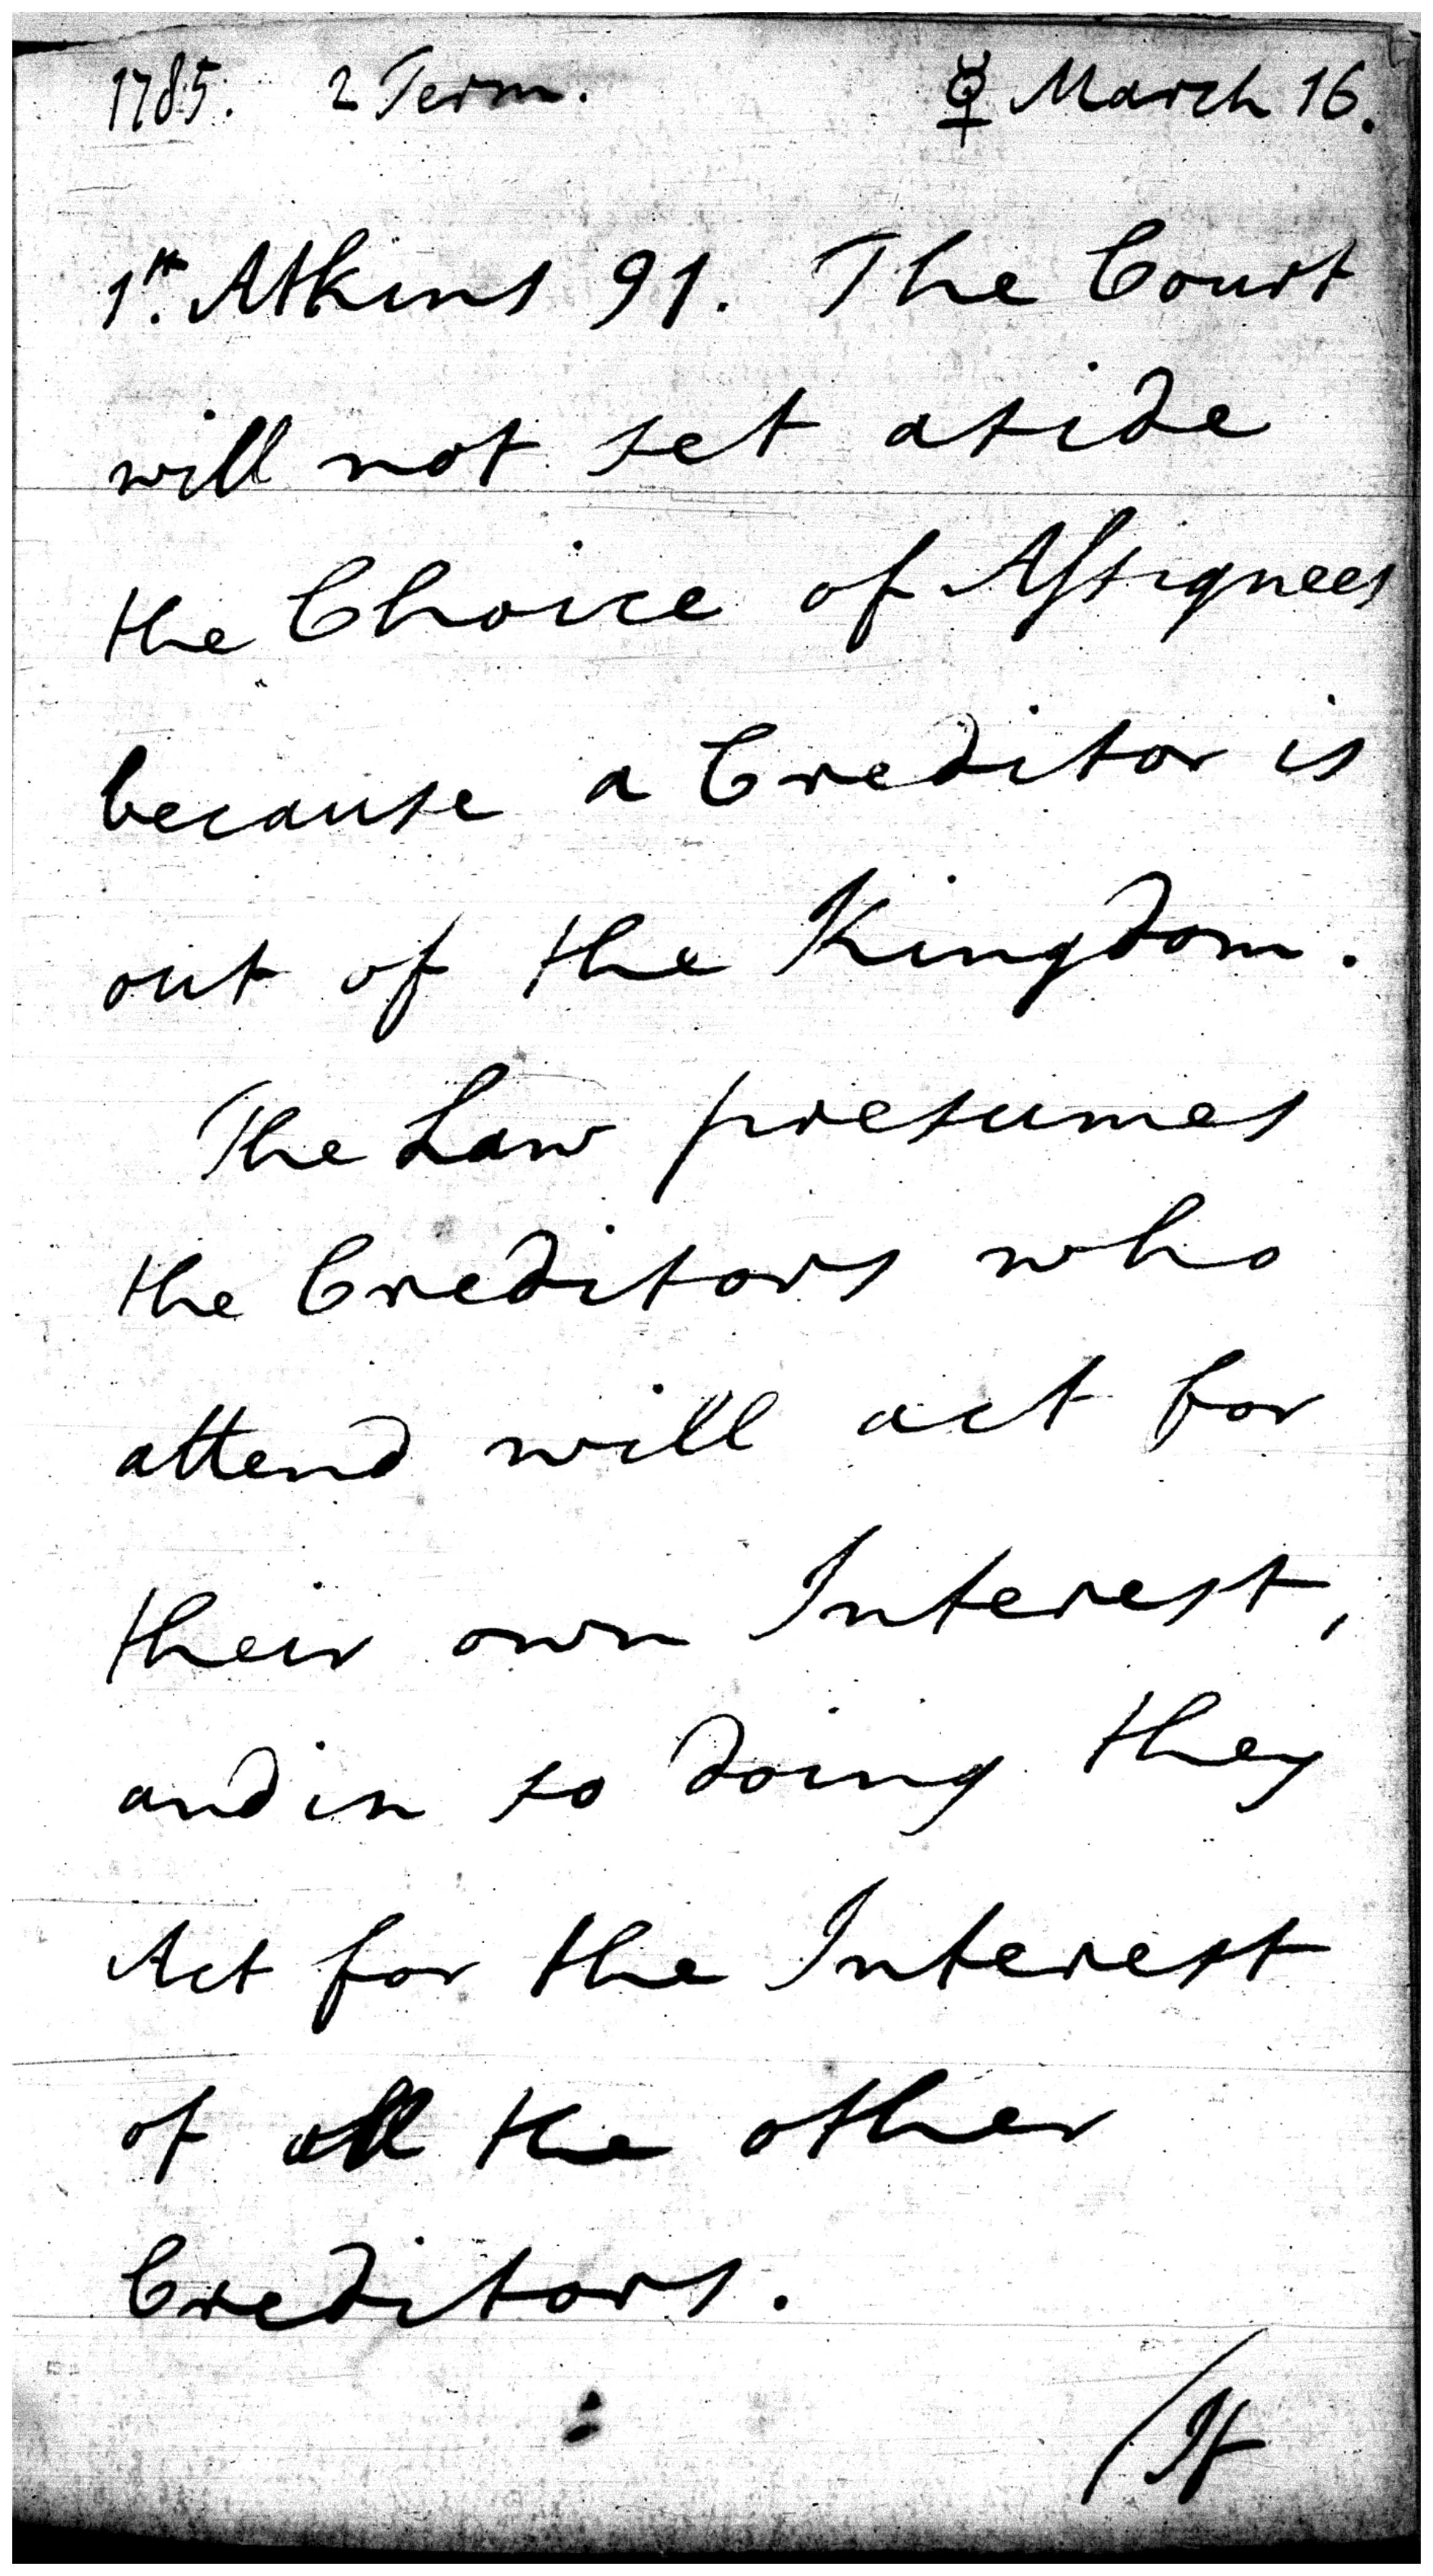 1785. 2 Term. ☿ March 16.
1st. Atkins 91. The Court
will not set aside
the Choice of Assignees
because a Creditor is
out of the Kingdom.
The Law presumes
the Creditors who
attend will act for
their own Interest,
and in so doing they
Act for the Interest
of all the other
Creditors.
/If